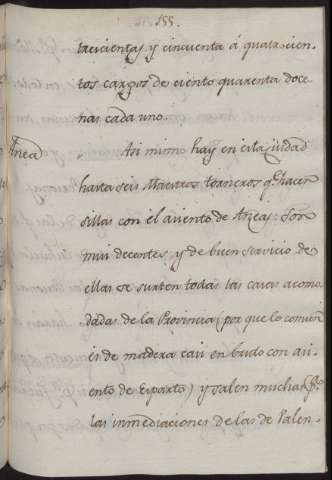 155.
trecientas y cincuenta á quatrocien-
tos cargos de ciento quarenta doce-
nas cada uno.
Anea
Asi mismo hay en esta Ciudad
hasta seis Maestros torneros q.e hacen
sillas con el asiento de Aneas: Son
mui decentes, y de buen servicio de
ellas se surten todas las casas acomo-
dadas de la Provincia (por que lo comun
es de madera casi en bruto con asi-
ento de Esparto) y salen muchas p.a
las inmediaciones de las de Valen-